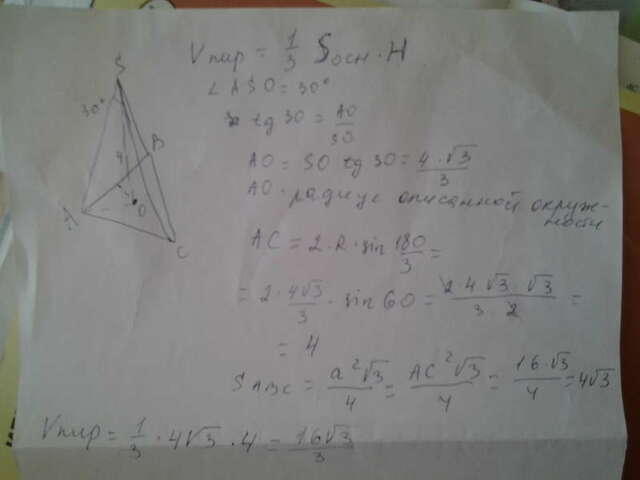 Vпир = 1/3 Sосн · H
∠ASO = 30°
tg 30 = AO/SO
AO = SO tg 30 = 4·√3/3
AO - радиус описанной окруж-
ности
AC = 2·R·sin 180/3 =
= 2·4√3/3 · sin 60 = 2·4√3·√3/3·2 =
= 4
S ABC = a²√3/4 = AC²√3/4 = 16·√3/4 = 4√3
Vпир = 1/3 · 4√3 · 4 = 16√3/3
S
30°
B
4
A
O
C